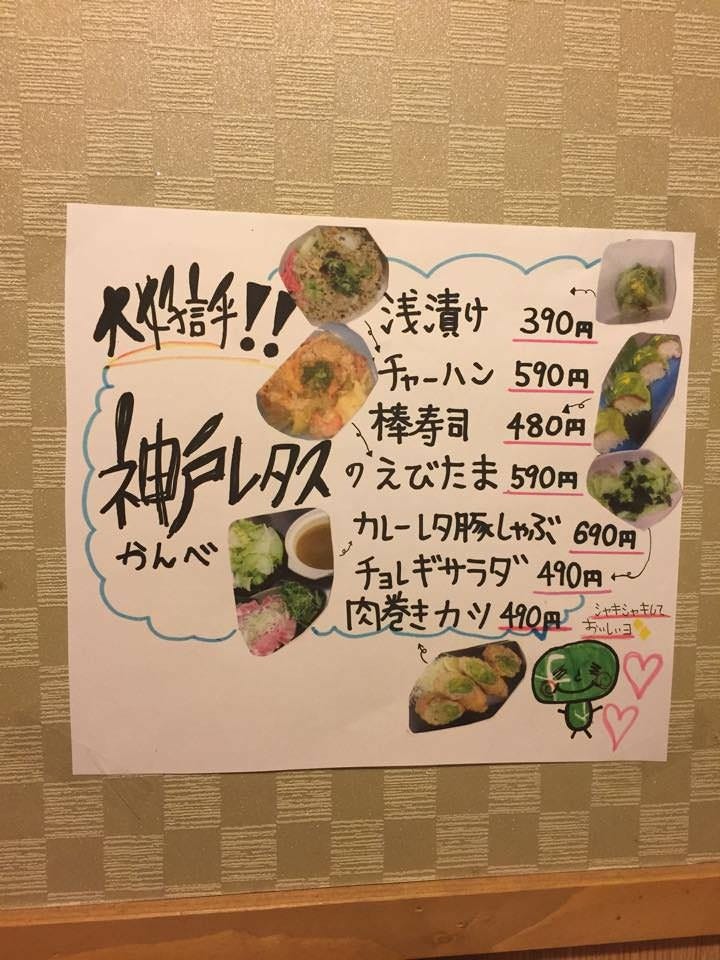 大好評!!
神戸レタス
かんべ
の
浅漬け 390円
チャーハン 590円
棒寿司 480円
えびたま 590円
カレーレタ豚しゃぶ 690円
チョレギサラダ 490円
肉巻きカツ 490円
シャキシャキして
おいしいヨ